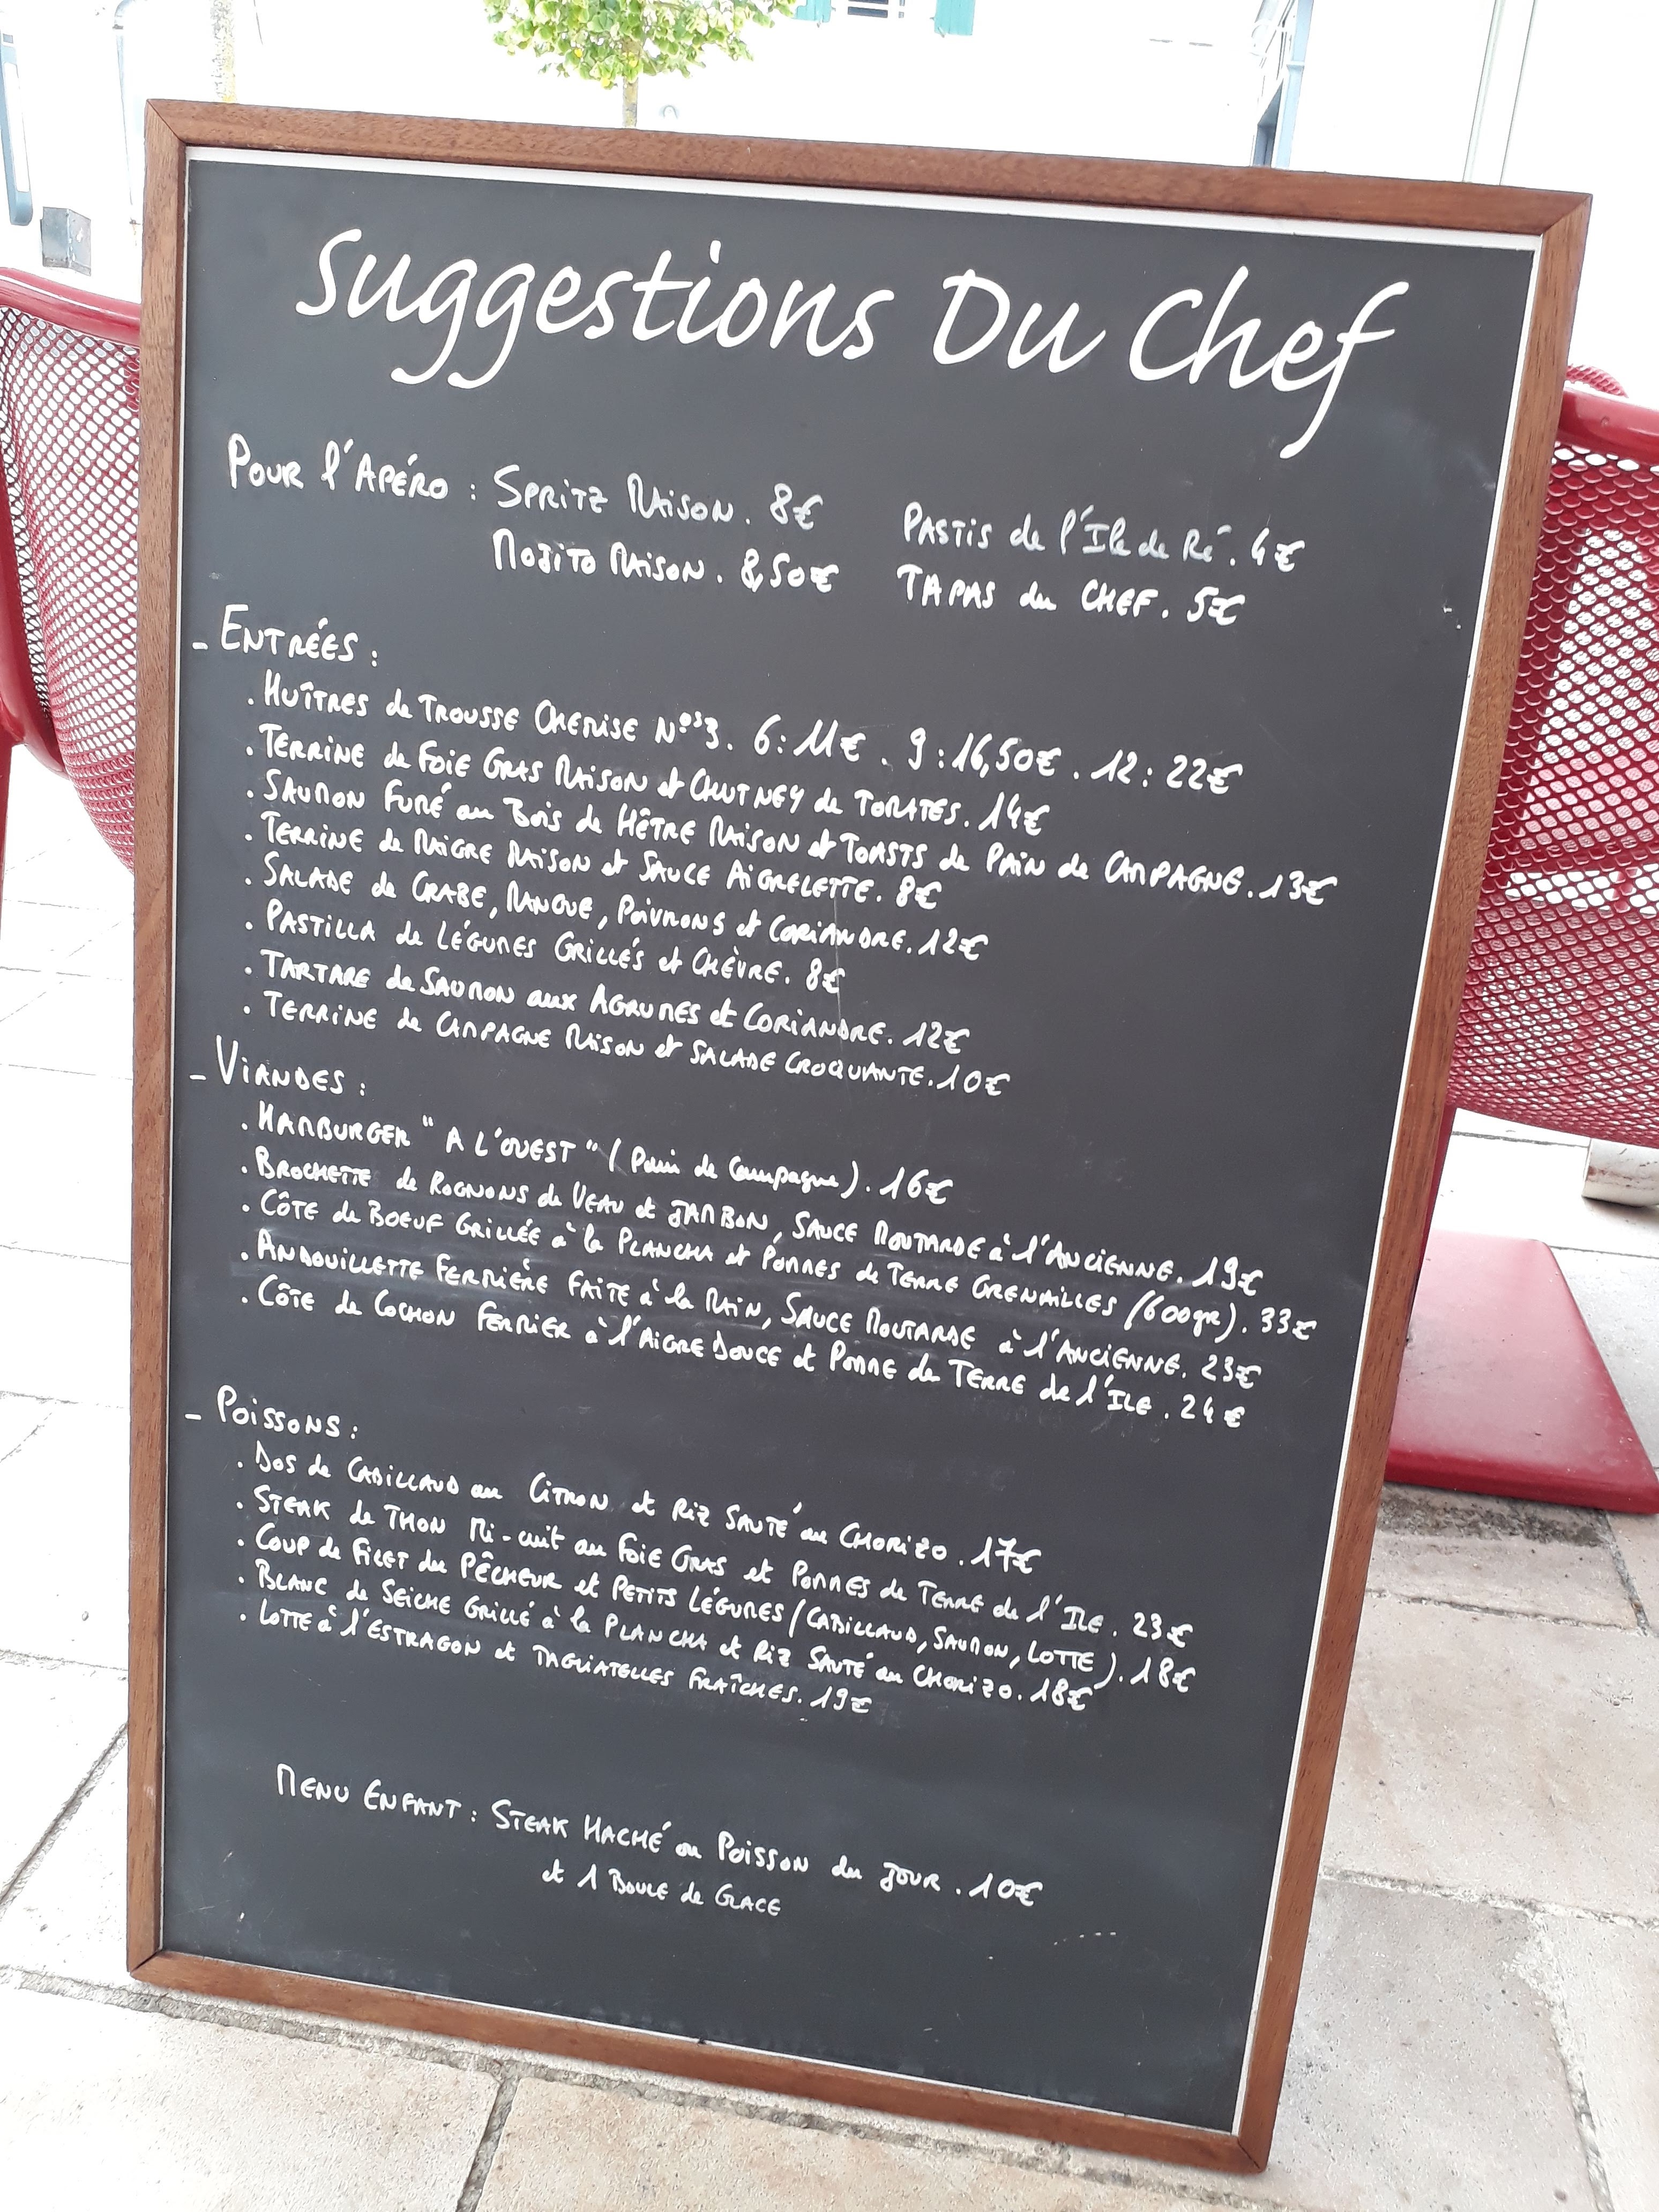 Suggestions Du Chef
Pour l'Apéro : Spritz Maison. 8€ Pastis de l'Ile de Ré. 4€
Mojito Maison. 8,50€ Tapas du Chef. 5€
- Entrées :
. Huîtres de Trousse Chemise N°3. 6: 11€ . 9 : 16,50€ . 12 : 22€
. Terrine de Foie Gras Maison et Chutney de Tomates. 14€
. Saumon Fumé au Bois de Hêtre Maison et Toasts de Pain de Campagne. 13€
. Terrine de Maigre Maison et Sauce Aigrelette. 8€
. Salade de Crabe, Mangue, Poivrons et Coriandre. 12€
. Pastilla de Légumes Grillés et Chèvre. 8€
. Tartare de Saumon aux Agrumes et Coriandre. 12€
. Terrine de Campagne Maison et Salade Croquante. 10€
- Viandes :
. Hamburger "A l'Ouest" (Pain de Campagne). 16€
. Brochette de Rognons de Veau et Jambon, Sauce Moutarde à l'Ancienne. 19€
. Côte de Boeuf Grillée à la Plancha et Pommes de Terre Grenailles (600gr). 33€
. Andouillette Fermière Faite à la Main, Sauce Moutarde à l'Ancienne. 23€
. Côte de Cochon Fermier à l'Aigre Douce et Pomme de Terre de l'Ile . 24€
- Poissons :
. Dos de Cabillaud au Citron et Riz Sauté au Chorizo . 17€
. Steak de Thon Mi-cuit au Foie Gras et Pommes de Terre de l'Ile . 23€
. Coup de Filet du Pêcheur et Petits Légumes (Cabillaud, Saumon, Lotte). 18€
. Blanc de Seiche Grillé à la Plancha et Riz Sauté au Chorizo. 18€
. Lotte à l'Estragon et Tagliatelles Fraîches. 19€
Menu Enfant : Steak Haché ou Poisson du Jour . 10€
et 1 Boule de Glace